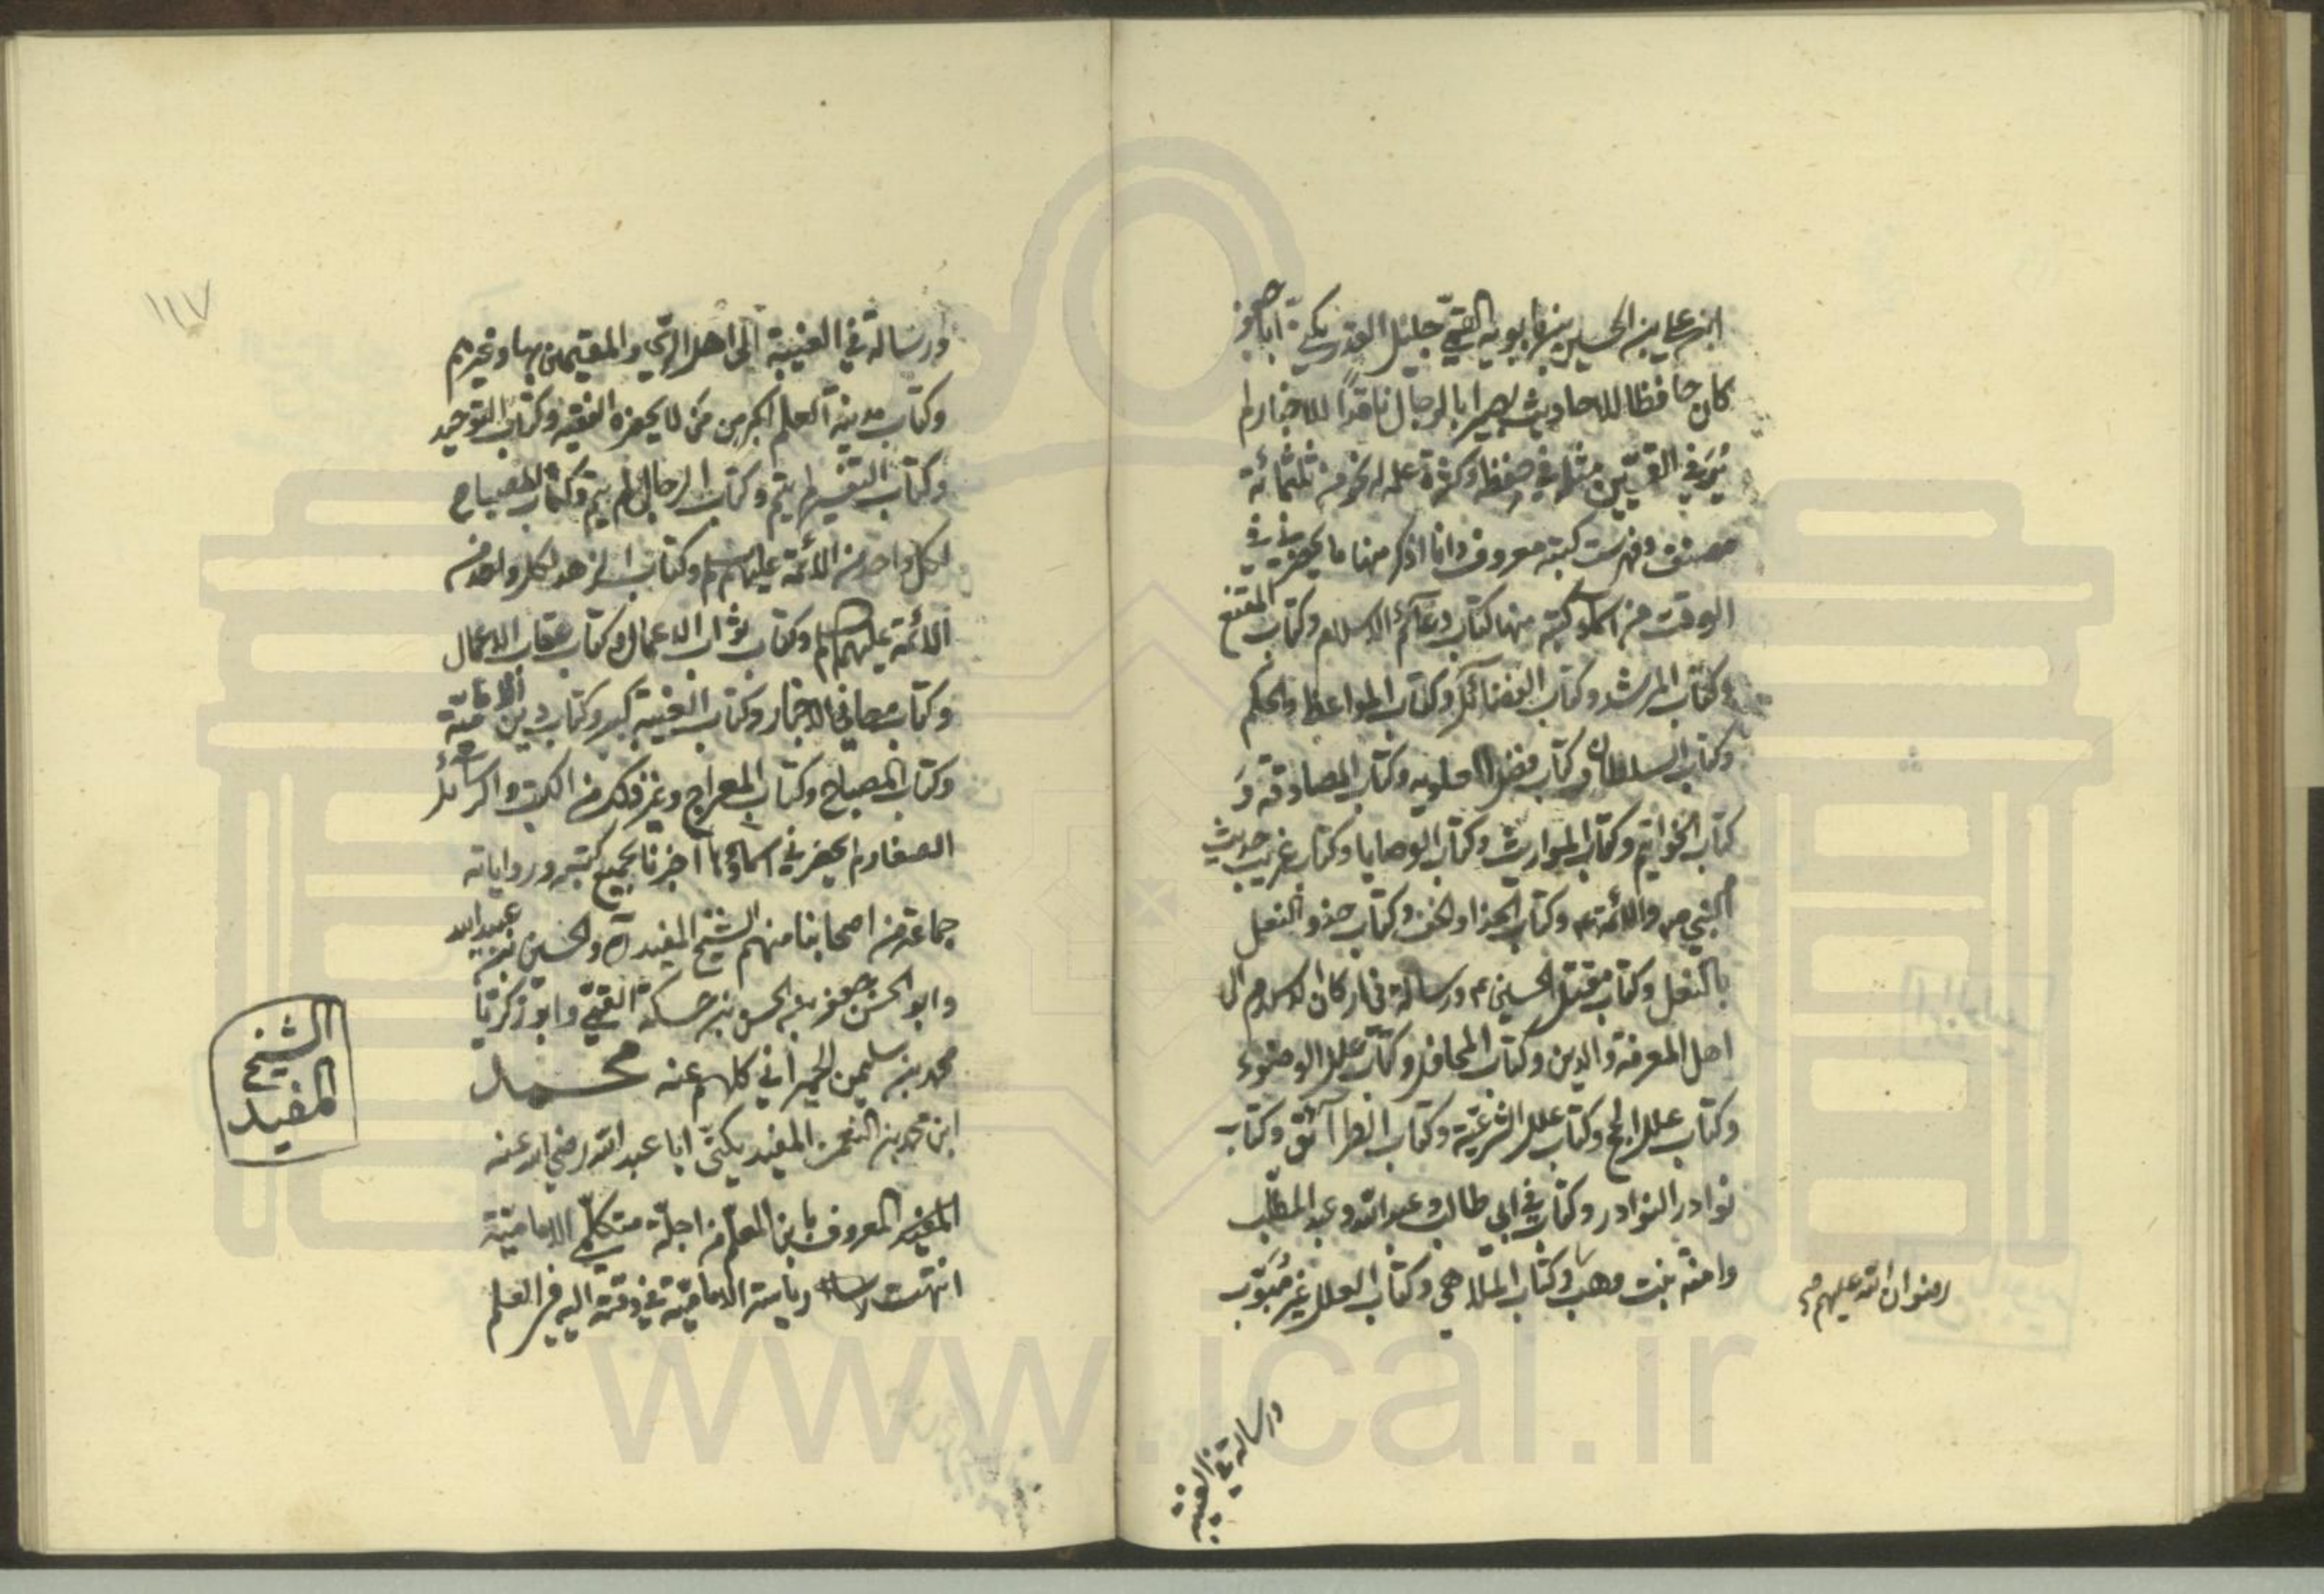 ابن علي بن الحسين بن بابويه القمّي جليل القدر يكنّى ابا جعفر
كان حافظا للاحاديث بصيرا بالرجال ناقدًا للاخبار لم
يُرَ في القميّين مثله في حفظه وكثرة علمه له نحو من ثلثمائة
مصنف وفهرست كتبه معروف وانا اذكر منها ما يحضرني في
الوقت من اسماء كتبه منها كتاب دعائم الاسلام وكتاب المقنع
وكتاب المرشد وكتاب الفضائل وكتاب المواعظ والحكم
وكتاب السلطان وكتاب فضل العلوية وكتاب المصادقة و
كتاب الخواتيم وكتاب المواريث وكتاب الوصايا وكتاب غريب حديث
النبي ص والائمة ع وكتاب الحذاء والخف وكتاب حذو النعل
بالنعل وكتاب مقتل الحسين ع ورسالة في اركان الاسلام الى
اهل المعرفة والدين وكتاب المحافل وكتاب علل الوضوء
وكتاب علل الحج وكتاب علل الشرعيّة وكتاب الطرائق وكتاب
نوادر النوادر وكتاب في ابي طالب وعبد الله وعبد المطّلب
وامنة بنت وهب وكتاب الملاهي وكتاب العلل غير مُبَوّب
رضوان الله عليهم
ورسالة في الغيبة
١١٧
ورسالة في الغيبة الى اهل الرّي والمقيمين بها وغيرهم
وكتاب مدينة العلم اكبر من من لا يحضره الفقيه وكتاب التوحيد
وكتاب التفسير لم يتم وكتاب الرجال لم يتم وكتاب المصباح
لكل واحد من الائمة عليهم السلم وكتاب الزهد لكل واحد من
الائمة عليهم السلم وكتاب ثواب الاعمال وكتاب عقاب الاعمال
وكتاب معاني الاخبار وكتاب الغيبة كبير وكتاب دين الاماميّة
وكتاب المصباح وكتاب المعراج وغير ذلك من الكتب والرسائل
الصغار لم يحضرني اسماؤها اخبرنا بجميع كتبه ورواياته
جماعة من اصحابنا منهم الشيخ المفيد ره والحسين بن عبيد الله
وابو الحسن جعفر بن الحسن بن حسكة القمّي وابو زكريّا
محمد بن سليمن الحمراني كلهم عنه محمد
ابن محمد بن النعمن المفيد يكنّى ابا عبد الله رضي الله عنه
المفيد المعروف بابن المعلّم من اجلّة متكلّمي الاماميّة
انتهت رياسة الاماميّة في وقته اليه في العلم
الشيخ
المفيد
www.ical.ir